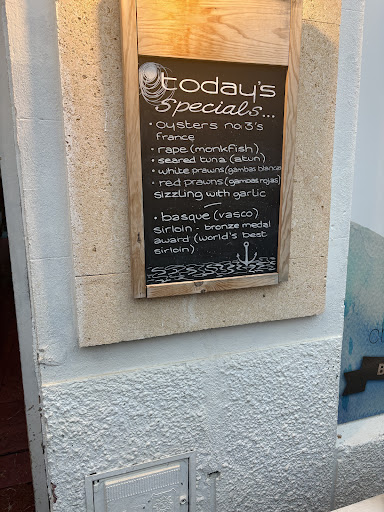 today's
specials...
• oysters no.3's
france
• rape (monkfish)
• seared tuna (atun)
• white prawns (gambas blancas
• red prawns (gambas rojas)
sizzling with garlic
• basque (vasco)
sirloin - bronze medal
award (world's best
sirloin)